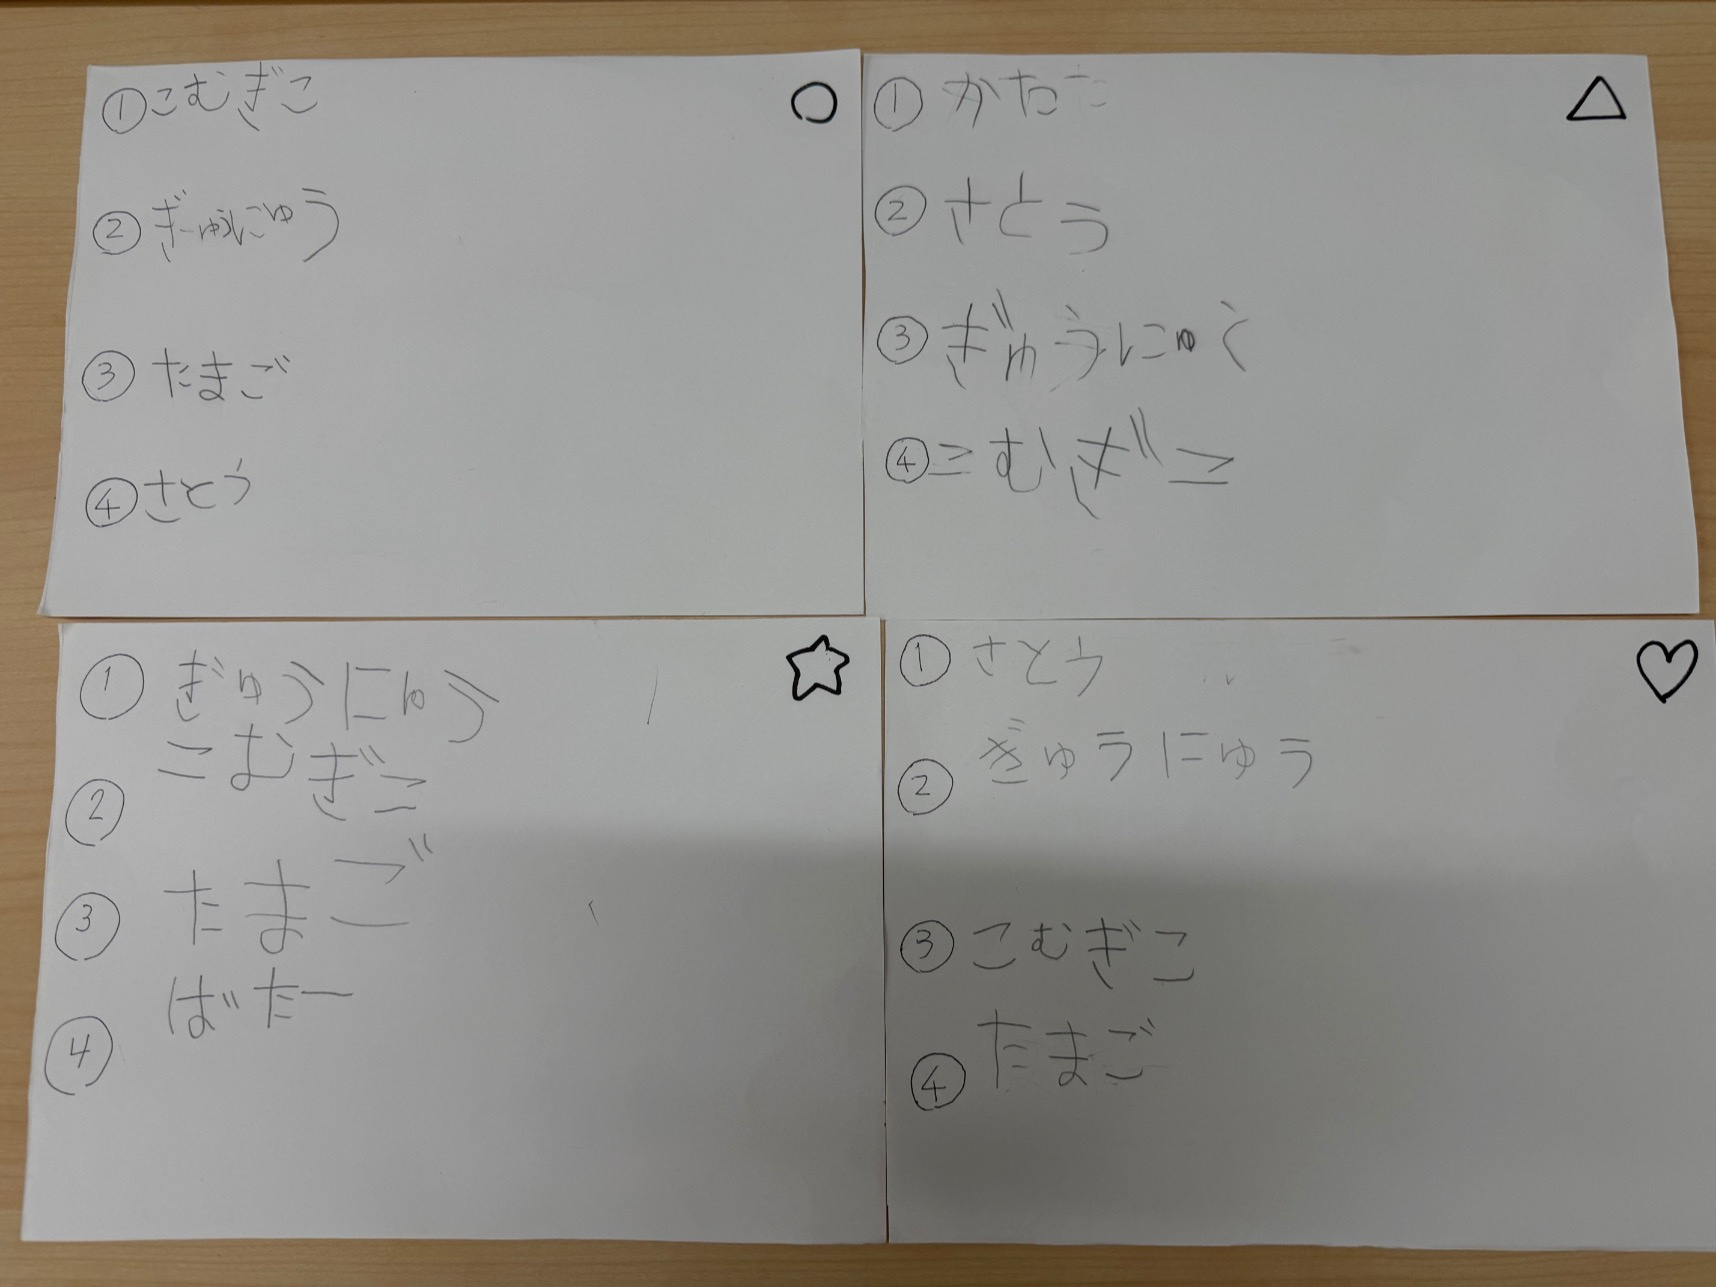 ①こむぎこ
②ぎゅうにゅう
③たまご
④さとう
①
②さとう
③ぎゅうにゅう
④こむぎこ
①ぎゅうにゅう
②こむぎこ
③たまご
④ばたー
①さとう
②ぎゅうにゅう
③こむぎこ
④たまご